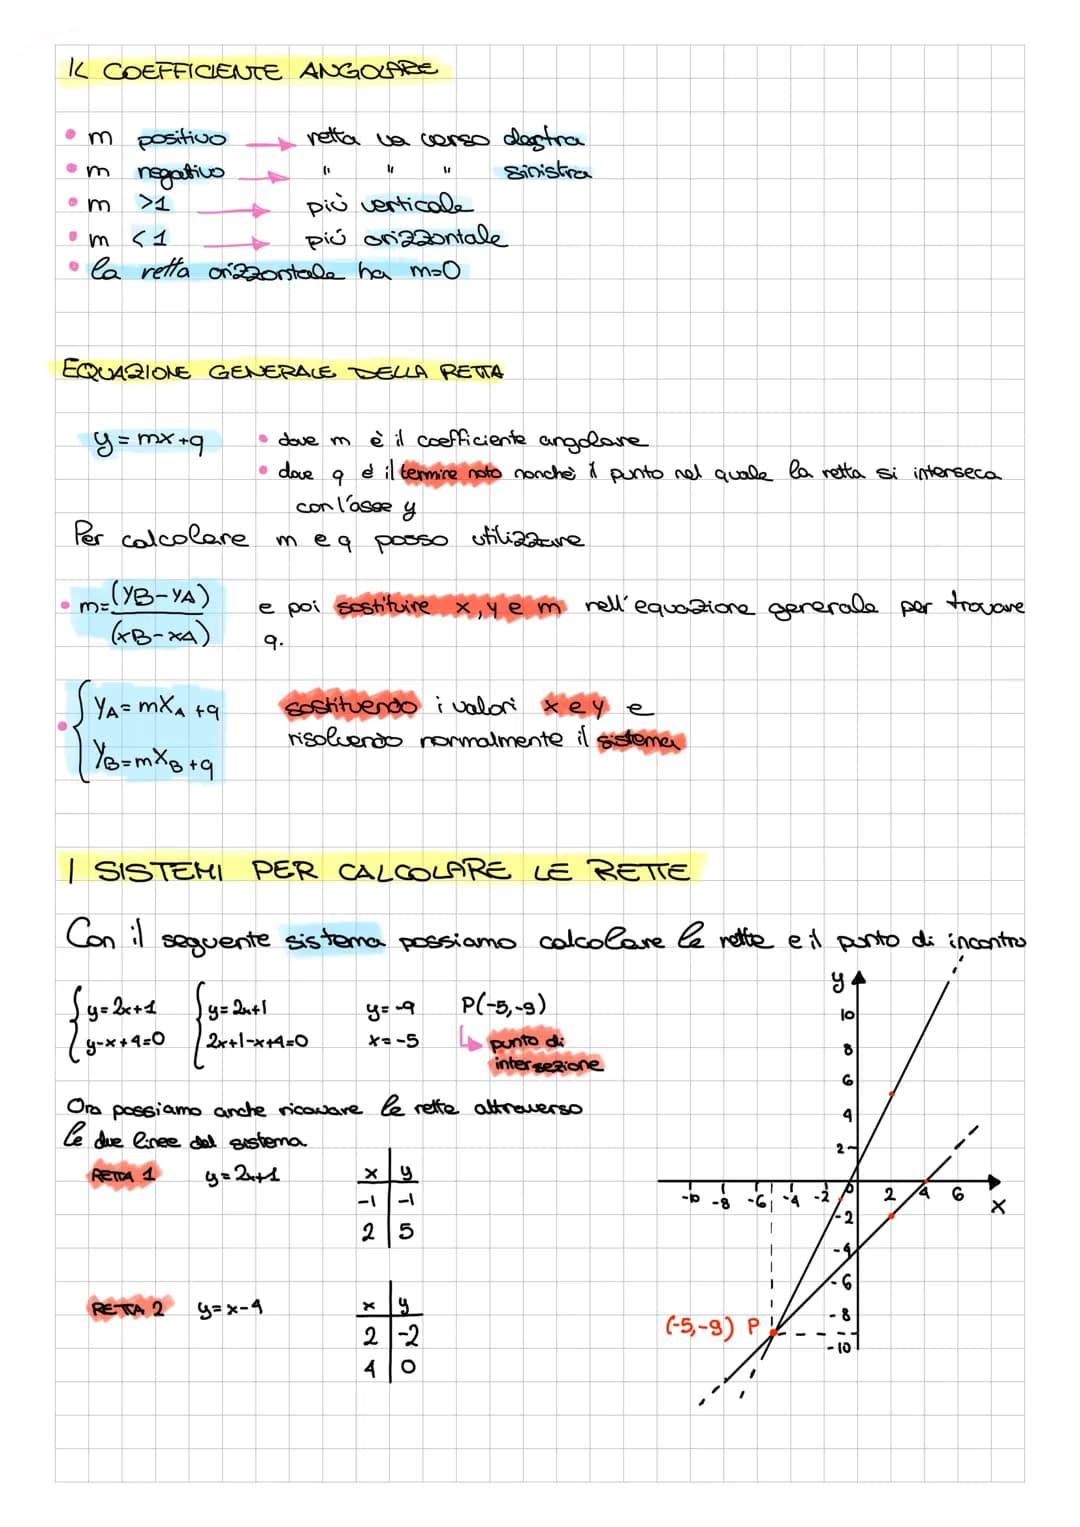 IL COEFFICIENTE ANGOLARE
• m positivo → retta va verso destra
• m negativo → " " " sinistra
• m >1 → più verticale
• m <1 → più orizzontale
• la retta orizzontale ha m=0
EQUAZIONE GENERALE DELLA RETTA
y = mx+q • dove m è il coefficiente angolare
• dove q è il termine noto nonché il punto nel quale la retta si interseca
con l'asse y
Per calcolare m e q posso utilizzare
• m= (yB-yA) / (xB-xA) e poi sostituire x, y e m nell'equazione generale per trovare
q.
• { yA = mxA +q sostituendo i valori x e y e
yB = mxB +q risolvendo normalmente il sistema
I SISTEMI PER CALCOLARE LE RETTE
Con il seguente sistema possiamo calcolare le rette e il punto di incontro
{ y=2x+1 { y=2x+1 y=-9 P(-5,-9)
y-x+4=0 2x+1-x+4=0 x=-5 ↳ punto di
intersezione
Ora possiamo anche ricavare le rette attraverso
le due linee del sistema.
RETTA 1 y=2x+1 x y
-1 -1
2 5
RETTA 2 y=x-4 x y
2 -2
4 0
y
10
8
6
4
2
-10 -8 -6 -4 -2 0 2 4 6 x
-2
-4
-6
-8
-10
(-5,-9) P